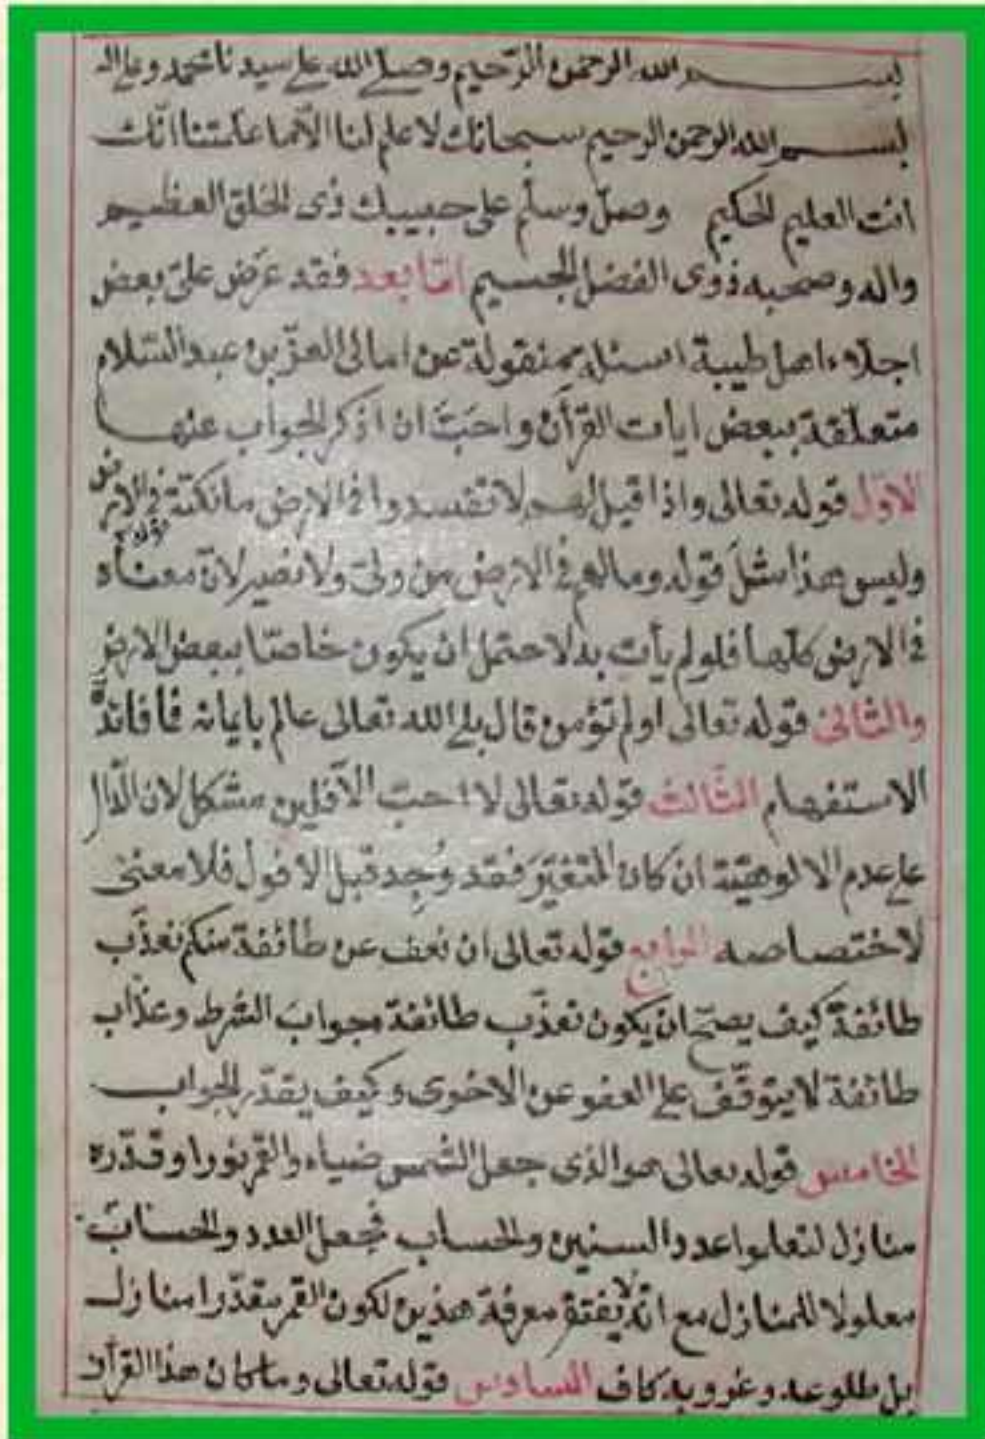 بســم الله الرحمن الرّحيم وصلى الله على سيدنا محمد وعلى اله
بســم الله الرحمن الرحيم سبحانك لا علم لنا الّا ما علّمتنا انّك
انت العليم الحكيم وصلّ وسلّم على حبيبك ذى الخلق العظيم
واله وصحبه ذوى الفضل الجسيم امّا بعد فقد عَرَض علىّ بعض
اجلاء اهل طيبة اسئلة منقولة عن امالى العزّ بن عبد السّلام
متعلّقة ببعض ايات القرآن واحَبَّ ان اذكر الجواب عنها
الاوّل قوله تعالى واذا قيل لهم لا تفسدوا فى الارض ما نكتة فى الارض
وليس هذا مثلَ قوله وما لهم فى الارض من ولىّ ولا نصير لانّ معناه
فى الارض كلّها فلو لم يأت به لاحتمل ان يكون خاصّا ببعض الارض
والثانى قوله تعالى اولم تؤمن قال بلى الله تعالى عالم بايمانه فما فائدة
الاستفهام الثّالث قوله تعالى لا احبّ الآفلين مشكل لان الدّال
على عدم الالوهيّة ان كان التغيّر فقد وُجِد قبل الافول فلا معنى
لاختصاصه الرابع قوله تعالى ان نعف عن طائفة منكم نعذّب
طائفة كيف يصحّ ان يكون نعذّب طائفة جوابَ الشرط وعذاب
طائفة لا يتوقّف على العفو عن الاخرى وكيف يقدّر الجواب
الخامس قوله تعالى هو الذى جعل الشّمس ضياء والقمر نورا وقدّره
منازل لتعلموا عدد السنين والحساب فجعل العدد والحساب
معلولا للمنازل مع انّه لا يفتقر معرفة هذين لكون القمر مقدّرا منازل
بل طلوعه وغروبه كاف السادس قوله تعالى وما كان هذا القرآن